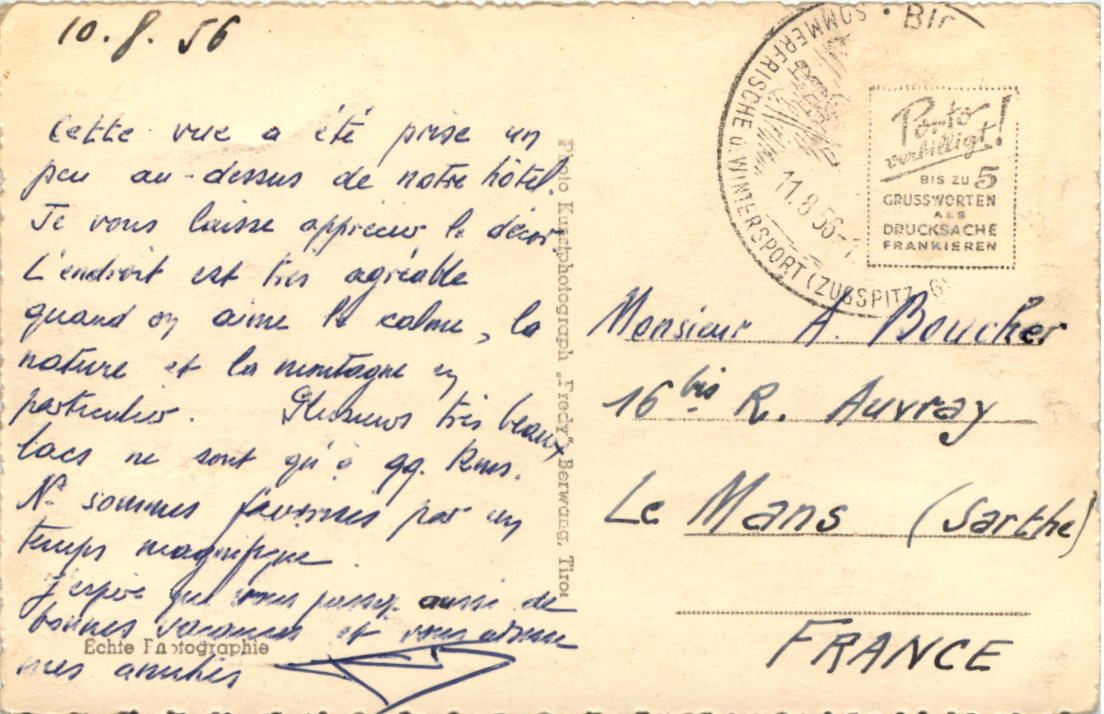 10.8.56
Cette vue a été prise un
peu au-dessus de notre hôtel.
Je vous laisse apprécier le décor
L'endroit est très agréable
quand on aime le calme, la
nature et la montagne en
particulier. Plusieurs très beaux
lacs ne sont qu'à qq. Kms.
N. sommes favorisés par un
temps magnifique.
J'espère que vous passez aussi de
bonnes vacances et vous adresse
mes amitiés
Echte Photographie
Photo Kunstphotograph „Fredy" Berwang, Tirol
SOMMERFRISCHE u. WINTERSPORT (ZUGSPITZ
11.8.56
Porto
verbilligt!
BIS ZU 5
GRUSSWORTEN
ALS
DRUCKSACHE
FRANKIEREN
Monsieur A. Boucher
16 bis R. Auvray
Le Mans (Sarthe)
FRANCE